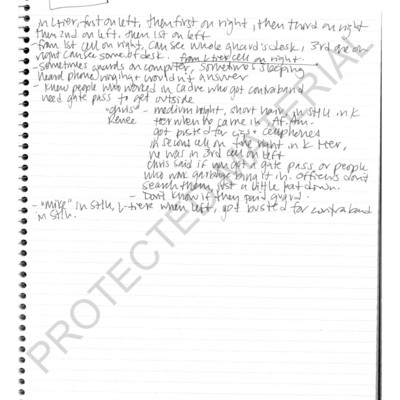 in L tier, first on left, then first on right, then third on right
then 2nd on left. then 1st on left
- from 1st cell on right, can see whole guard's desk, 3rd one on
right can see some of desk. from L tier cell on right
- sometimes guards on computer, sometimes sleeping
heard phone ringing + wouldn't answer
- know people who worked in cadre who got contraband
need gate pass to get outside
"chris" - medium height, short hair in SHU in K
Renee tier when he came in. Af. Am.
got busted for cigs + cellphones
in second cell on the right in K tier,
he was in 3rd cell on left
Chris said if you get a gate pass or people
who work garbage bring it in. Officers don't
search them, just a little pat down.
- Don't know if they paid guard.
- "Mike" in SHU, L-tier when left, got busted for contraband
in SHU.
PROTECTED MATERIAL